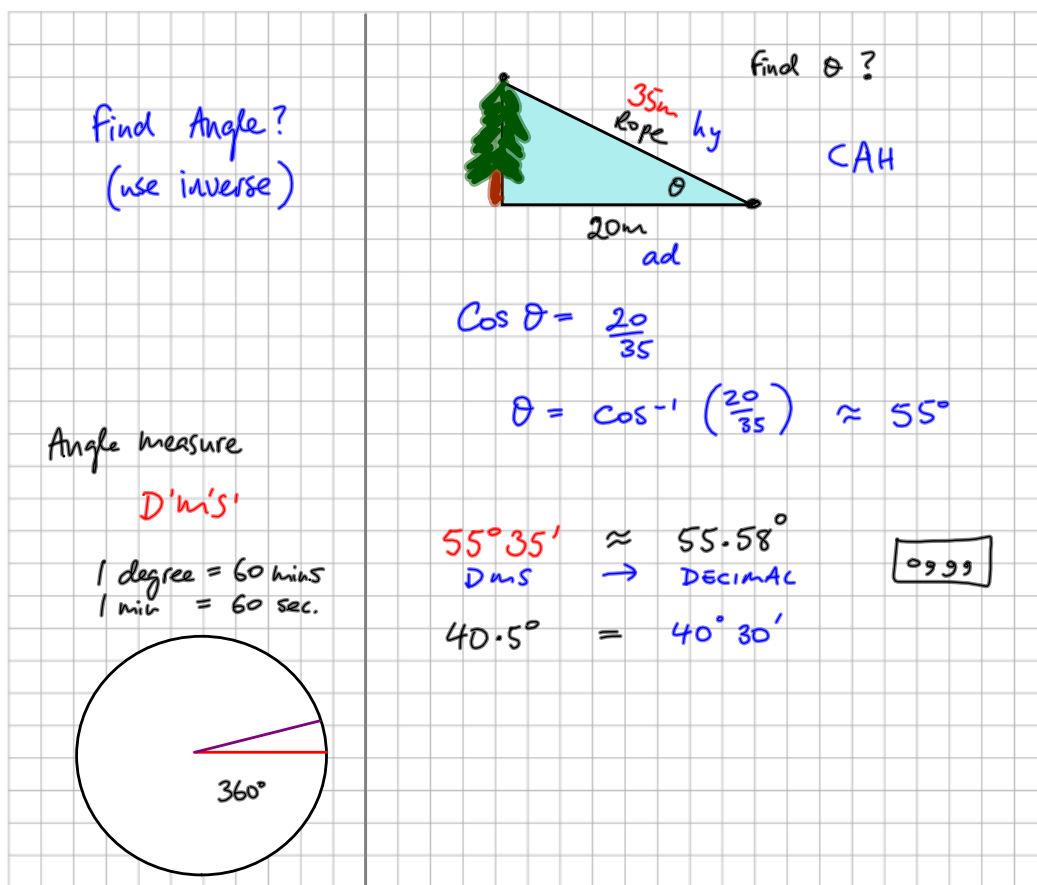 Find Angle?
(use inverse)
Angle measure
D'M'S'
1 degree = 60 mins
1 min = 60 sec.
360°
Find θ ?
35m
Rope
hy
CAH
θ
20m
ad
Cos θ = 20/35
θ = cos⁻¹ (20/35) ≈ 55°
55°35' ≈ 55.58°
DMS → DECIMAL
40.5° = 40° 30'